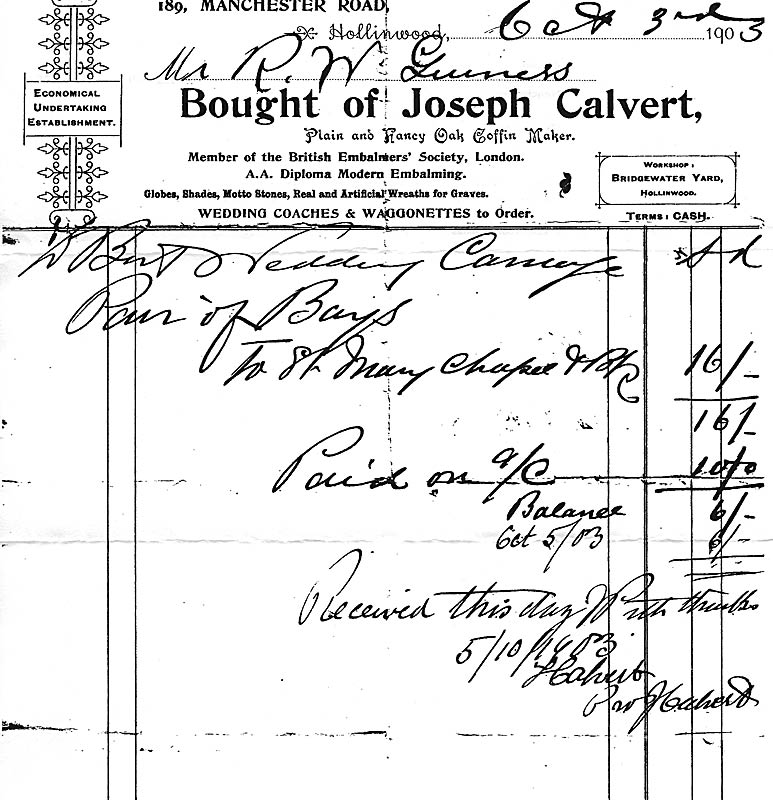 189, MANCHESTER ROAD,
Hollinwood, Oct 3rd 1903
Mr R. W. Guiness
ECONOMICAL
UNDERTAKING
ESTABLISHMENT.
Bought of Joseph Calvert,
Plain and Fancy Oak Coffin Maker.
Member of the British Embalmers' Society, London.
A.A. Diploma Modern Embalming.
Globes, Shades, Motto Stones, Real and Artificial Wreaths for Graves.
WEDDING COACHES & WAGGONETTES to Order.
WORKSHOP:
BRIDGEWATER YARD,
HOLLINWOOD.
TERMS: CASH.
Best Wedding Carriage s d
Pair of Bays
To St Mary Chapel & Bk 16/-
16/-
Paid on a/c 10/0
Balance 6/-
Oct 5/03 6/-
Received this day With thanks
5/10/1903
J Calvert
Per J Calvert